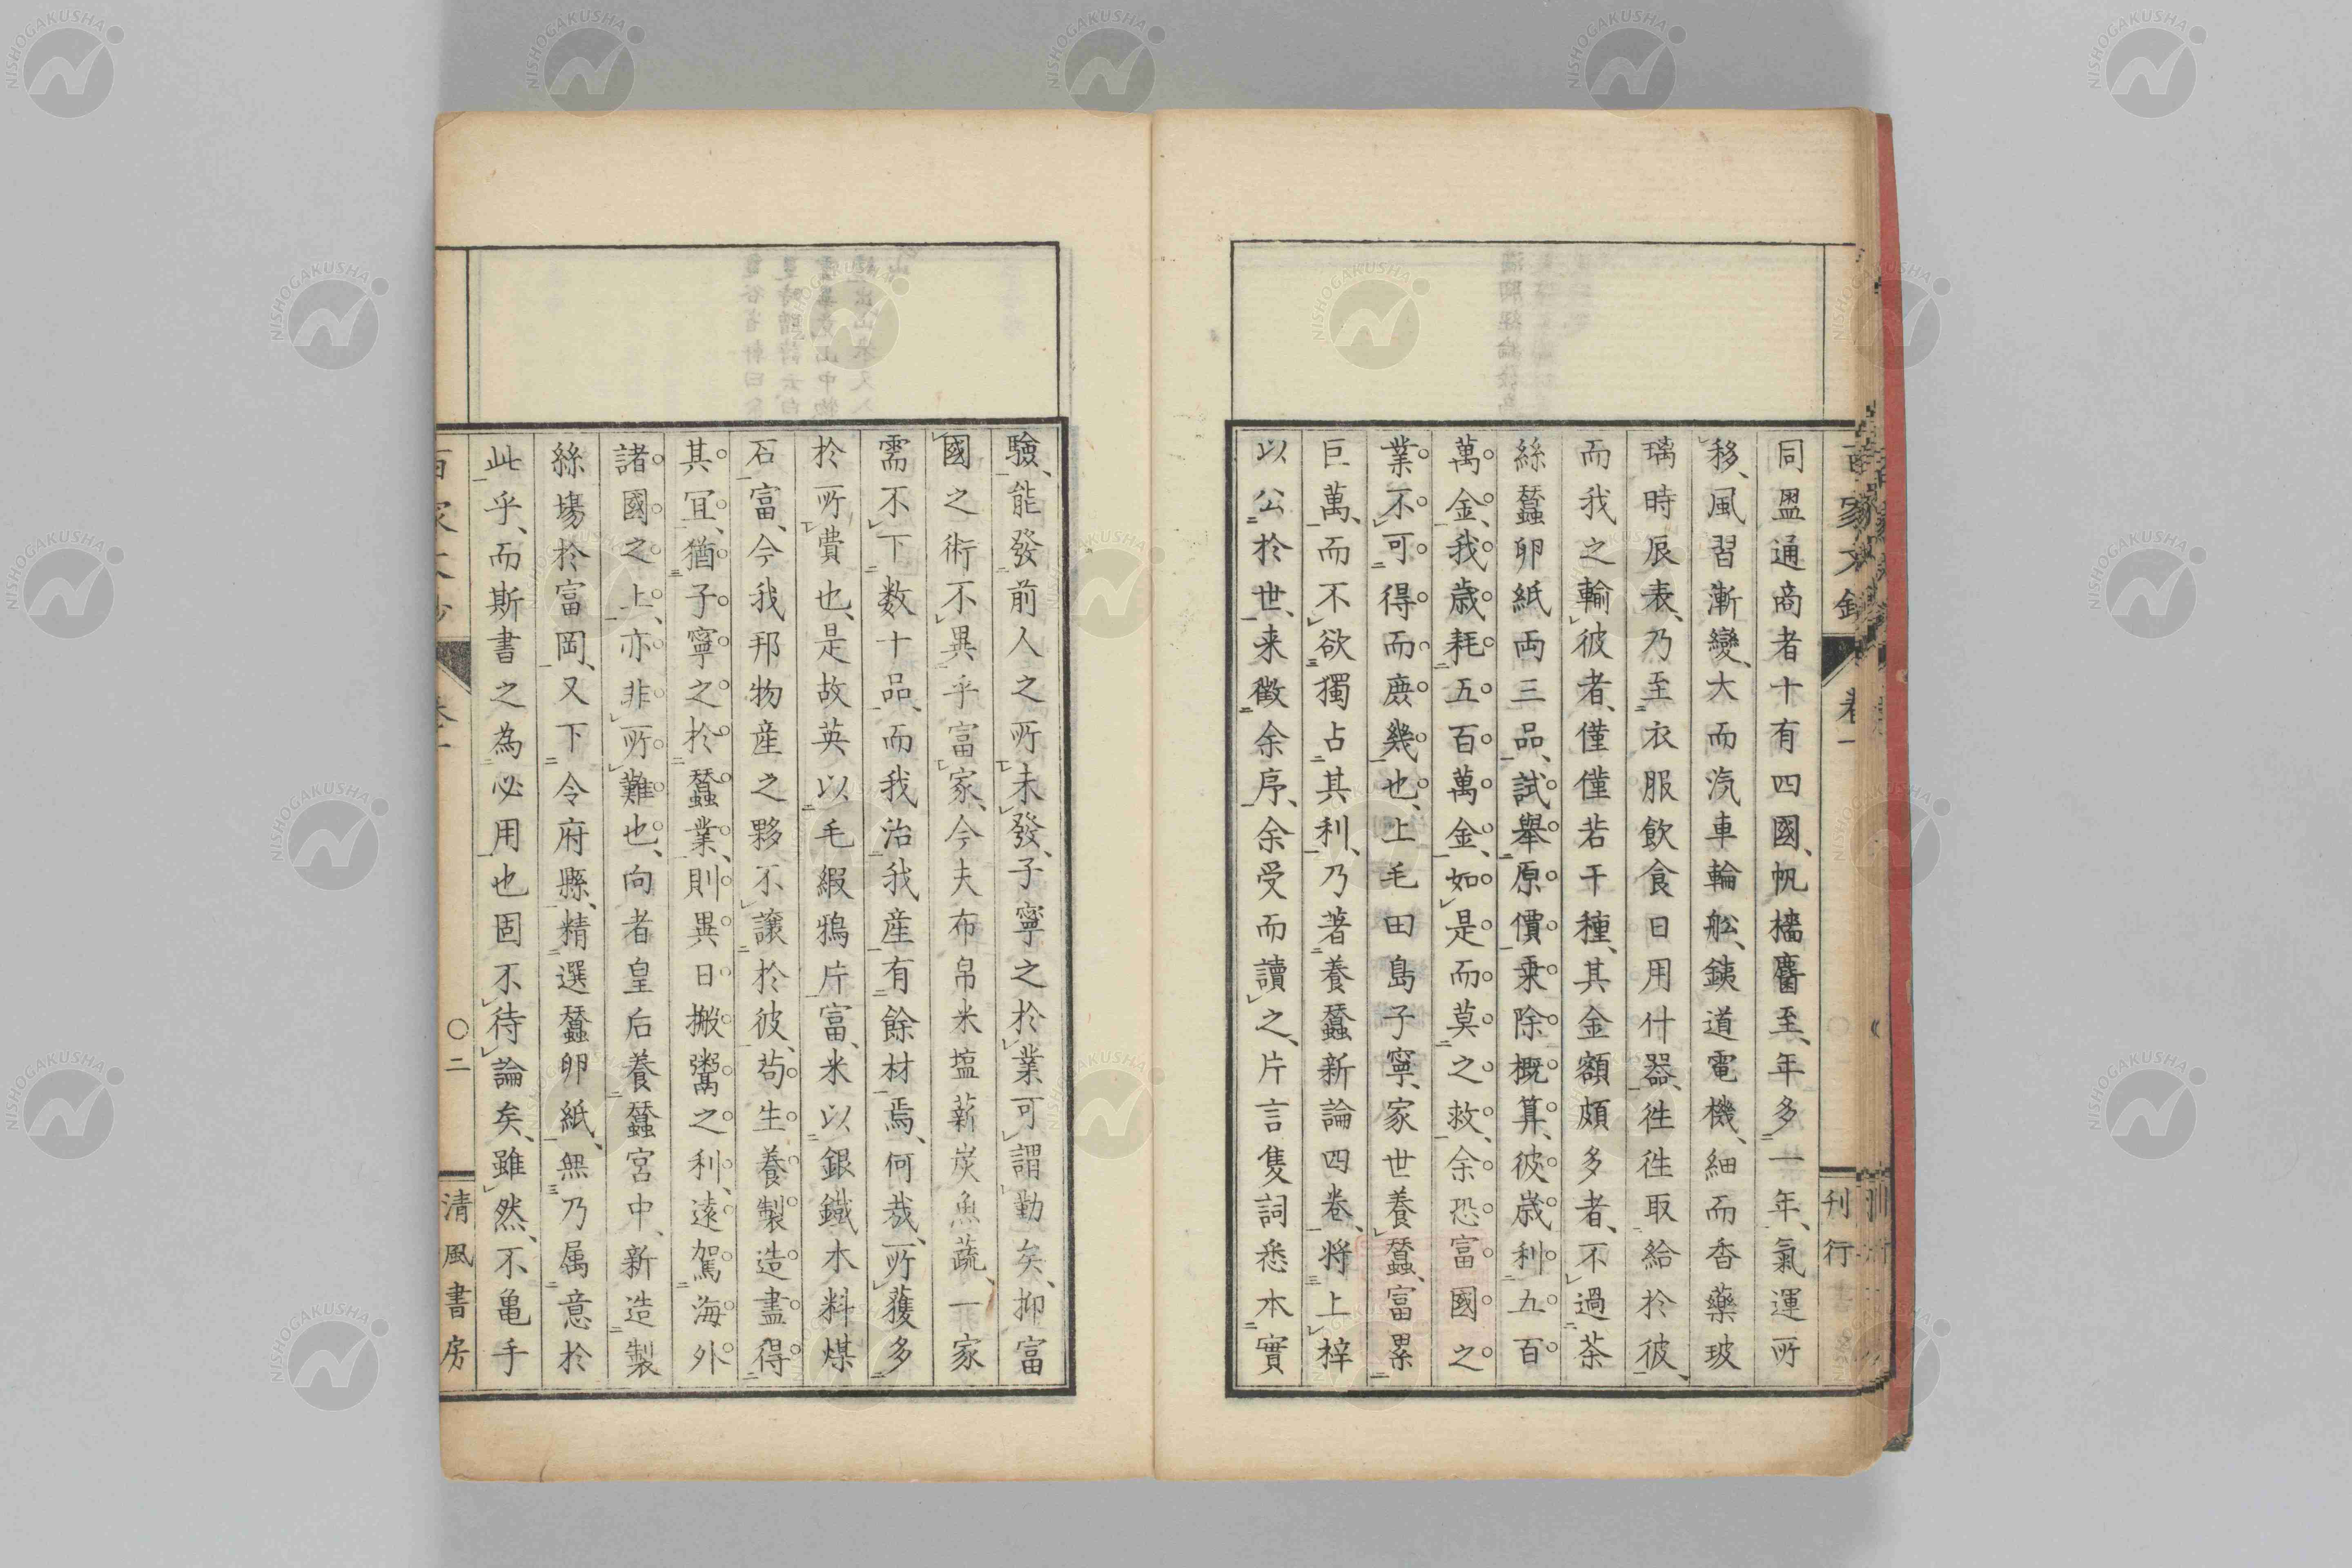 同盟通商者十有四國、帆檣麕至、年多一年、氣運所
移、風習漸變、大而汽車輪船、銕道電機、細而香藥玻
璃時辰表、乃至衣服飲食日用什器、徃徃取給於彼、
而我之輸彼者、僅僅若干種、其金額頗多者、不過茶
絲蠶卵紙両三品、試舉原價乗除概算、彼歳利五百
萬金、我歳耗五百萬金、如是而莫之救、余恐富國之
業不可得而庶幾也、上毛田島子寧、家世養蠶、富累
巨萬、而不欲獨占其利、乃著養蠶新論四卷、将上梓
以公於世、来徴余序、余受而讀之、片言隻詞悉本實
驗、能發前人之所未發、子寧之於業可謂勤矣、抑富
國之術不異乎富家、今夫布帛米塩薪炭魚蔬、一家
需不下数十品、而我治我産有餘材焉、何哉、所獲多
於所費也、是故英以毛緞鴉片富、米以銀鐵木料煤
石富、今我邦物産之夥不譲於彼、苟生養製造盡得
其宜、猶子寧之於蠶業、則異日搬鬻之利、遠駕海外
諸國之上、亦非所難也、向者皇后養蠶宮中、新造製
絲場於富岡、又下令府縣、精選蠶卵紙、無乃属意於
此乎、而斯書之為必用也固不待論矣、雖然、不亀手
卷一
刊行
〇二
清風書房
NISHOGAKUSHA